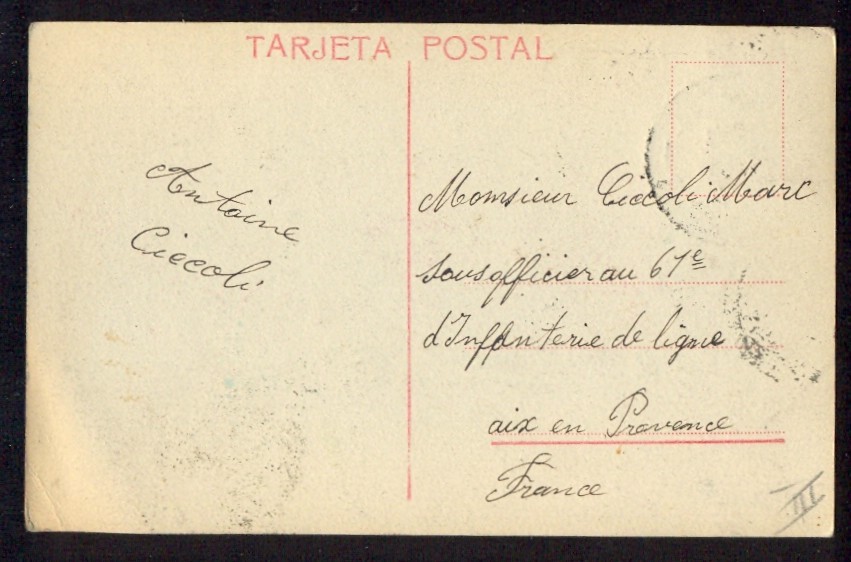 TARJETA POSTAL
Antoine
Ciccoli
Monsieur Ciccoli Marc
sous officier au 61e
d'Infanterie de ligne
aix en Provence
France
III